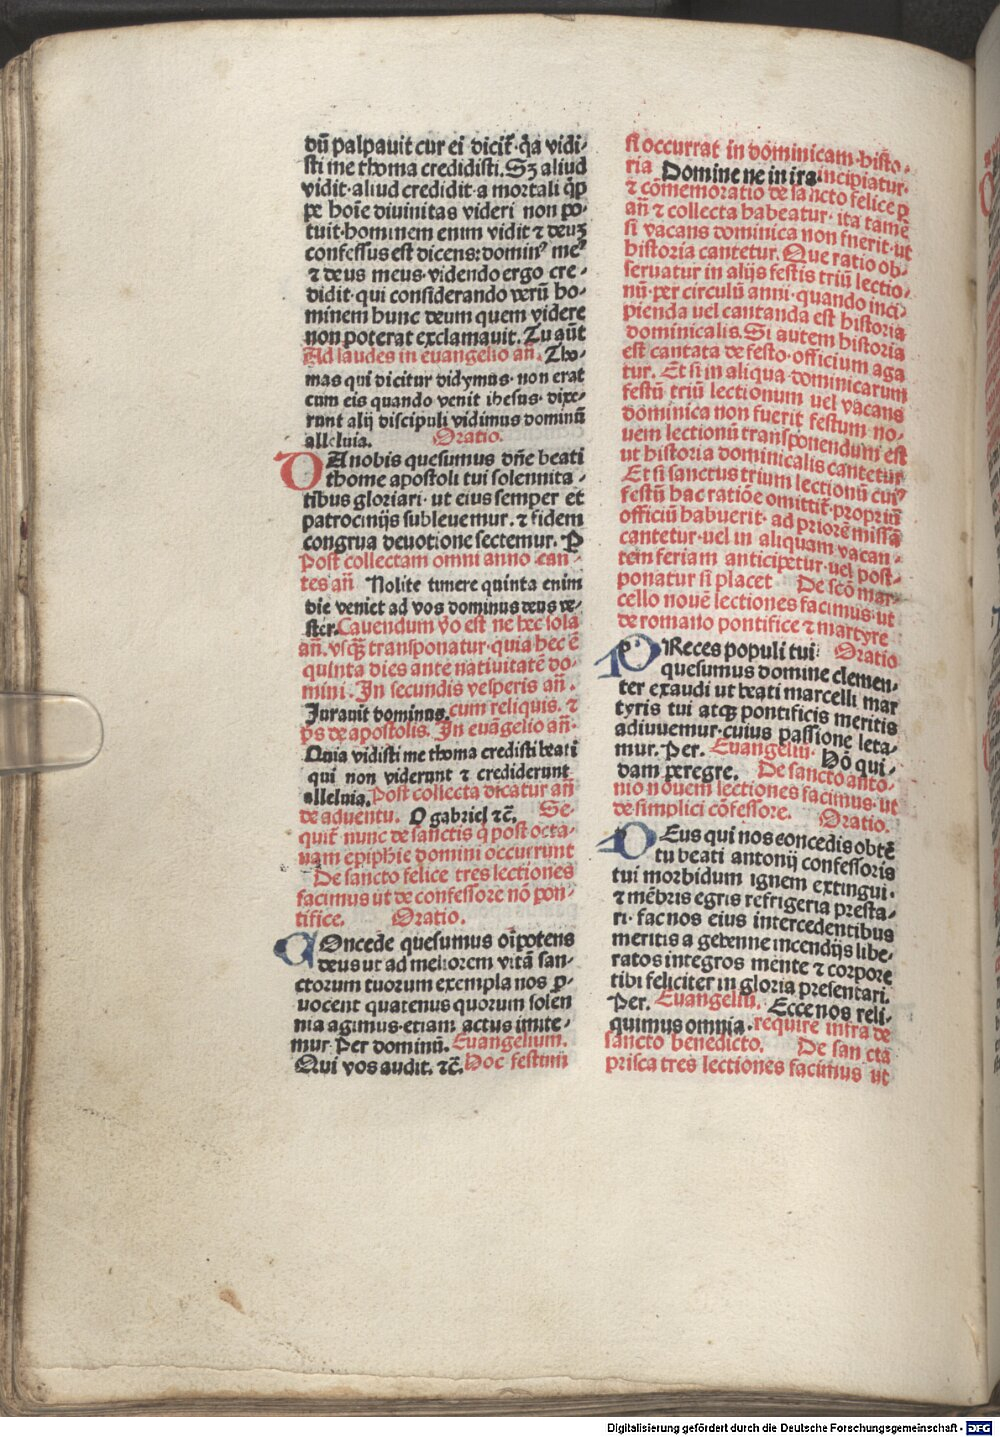 dū palpauit cur ei dicit᷑· q̄a vidi-
sti me thoma credidisti. Sꝫ aliud
vidit·aliud credidit·a mortali q̄p̄
pe hoīe diuinitas videri non po-
tuit·hominem enim vidit ⁊ deuꝫ
confessus est dicens: dominꝰ meꝰ
⁊ deus meus·videndo ergo cre-
didit·qui considerando verū ho-
minem hunc deum quem videre
non poterat exclamauit. Tu aūt
Ad laudes in euangelio añ. Tho-
mas qui dicitur didymus·non erat
cum eis quando venit ihesus· dixe-
runt alij discipuli vidimus dominū
alleluia. Oratio.
DA nobis quesumus dñe beati
thome apostoli tui solennita-
tibus gloriari·ut eius semper et
patrocinijs subleuemur.⁊ fidem
congrua deuotione sectemur. P̲
Post collectam omni anno can-
tes añ Nolite timere quinta enim
die veniet ad vos dominus deus ve-
ster. Cauendum v̄o est ne hec sola
añ. vsqꝫ transponatur·quia hec ē
quinta dies ante natiuitatē do-
mini. In secundis vesperis añ.
Jurauit dominus. cum reliquis. ⁊
p̄s de apostolis. In euāgelio añ·
Quia vidisti me thoma credisti beati
qui non viderunt ⁊ crediderunt
alleluia. Post collecta dicatur añ
de aduentu. O gabriel ⁊c̄. Se-
quit᷑ nunc de sanctis q̄ post octa-
uam epiphīe domini occurrunt
De sancto felice tres lectiones
facimus ut de confessore nō pon-
tifice. Oratio.
COncede quesumus oīpotens
deus ut ad meliorem vitā san-
ctorum tuorum exempla nos p̲-
uocent quatenus quorum solen
nia agimus·etiam actus imite-
mur Per dominū. Euangelium.
Qui vos audit. ⁊c̄. Hoc festum
si occurrat in dominicam·histo-
ria Domine ne in ira incipiatur·
⁊ cōmemoratio de sancto felice p̲
añ ⁊ collecta habeatur· ita tamē
si vacans dominica non fuerit·ut
historia cantetur. Que ratio ob-
seruatur in alijs festis triū lectio-
nū·per circulū anni·quando inci-
pienda uel cantanda est historia
dominicalis. Si autem historia
est cantata de festo·officium aga
tur. Et si in aliqua dominicarum
festū triū lectionum uel vacans
dominica non fuerit festum no-
uem lectionū transponendum est
ut historia dominicalis cantetur
Et si sanctus trium lectionū cuiꝰ
festū hac ratiōe omittit᷑·propriū
officiū habuerit· ad priorē missā
cantetur·uel in aliquam vacan-
tem feriam anticipetur·uel post-
ponatur si placet De scō mar-
cello nouē lectiones facimus·ut
de romano pontifice ⁊ martyre
PReces populi tui Oratio
quesumus domine clemen-
ter exaudi ut beati marcelli mar
tyris tui atqꝫ pontificis meritis
adiuuemur·cuius passione leta-
mur. Per. Euangeliū. Hō qui-
dam peregre. De sancto anto-
nio nouem lectiones facimus·ut
de simplici cōfessore. Oratio.
DEus qui nos concedis obtē
tu beati antonij confessoris
tui morbidum ignem extingui·
⁊ mēbris egris refrigeria presta-
ri·fac nos eius intercedentibus
meritis a gehenne incendijs libe-
ratos integros mente ⁊ corpore
tibi feliciter in gloria presentari.
Per. Euangeliū. Ecce nos reli-
quimus omnia. require infra de
sancto benedicto. De sancta
prisca tres lectiones facimus ut
Digitalisierung gefördert durch die Deutsche Forschungsgemeinschaft - DFG